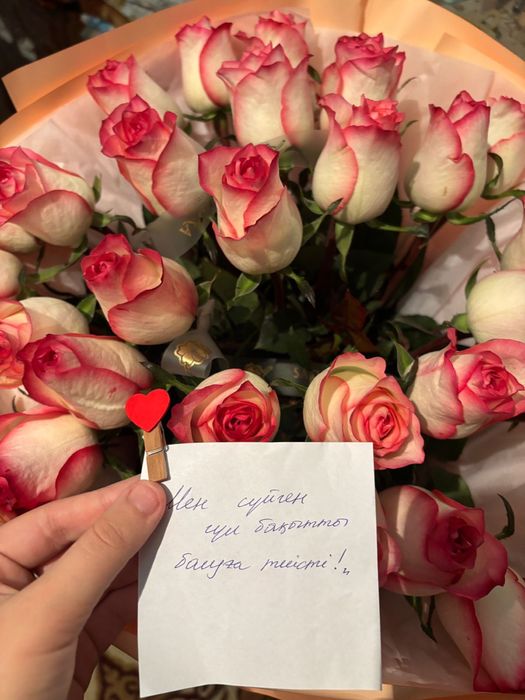 Мен сүйген
гүл бақытты
болуға тиісті!